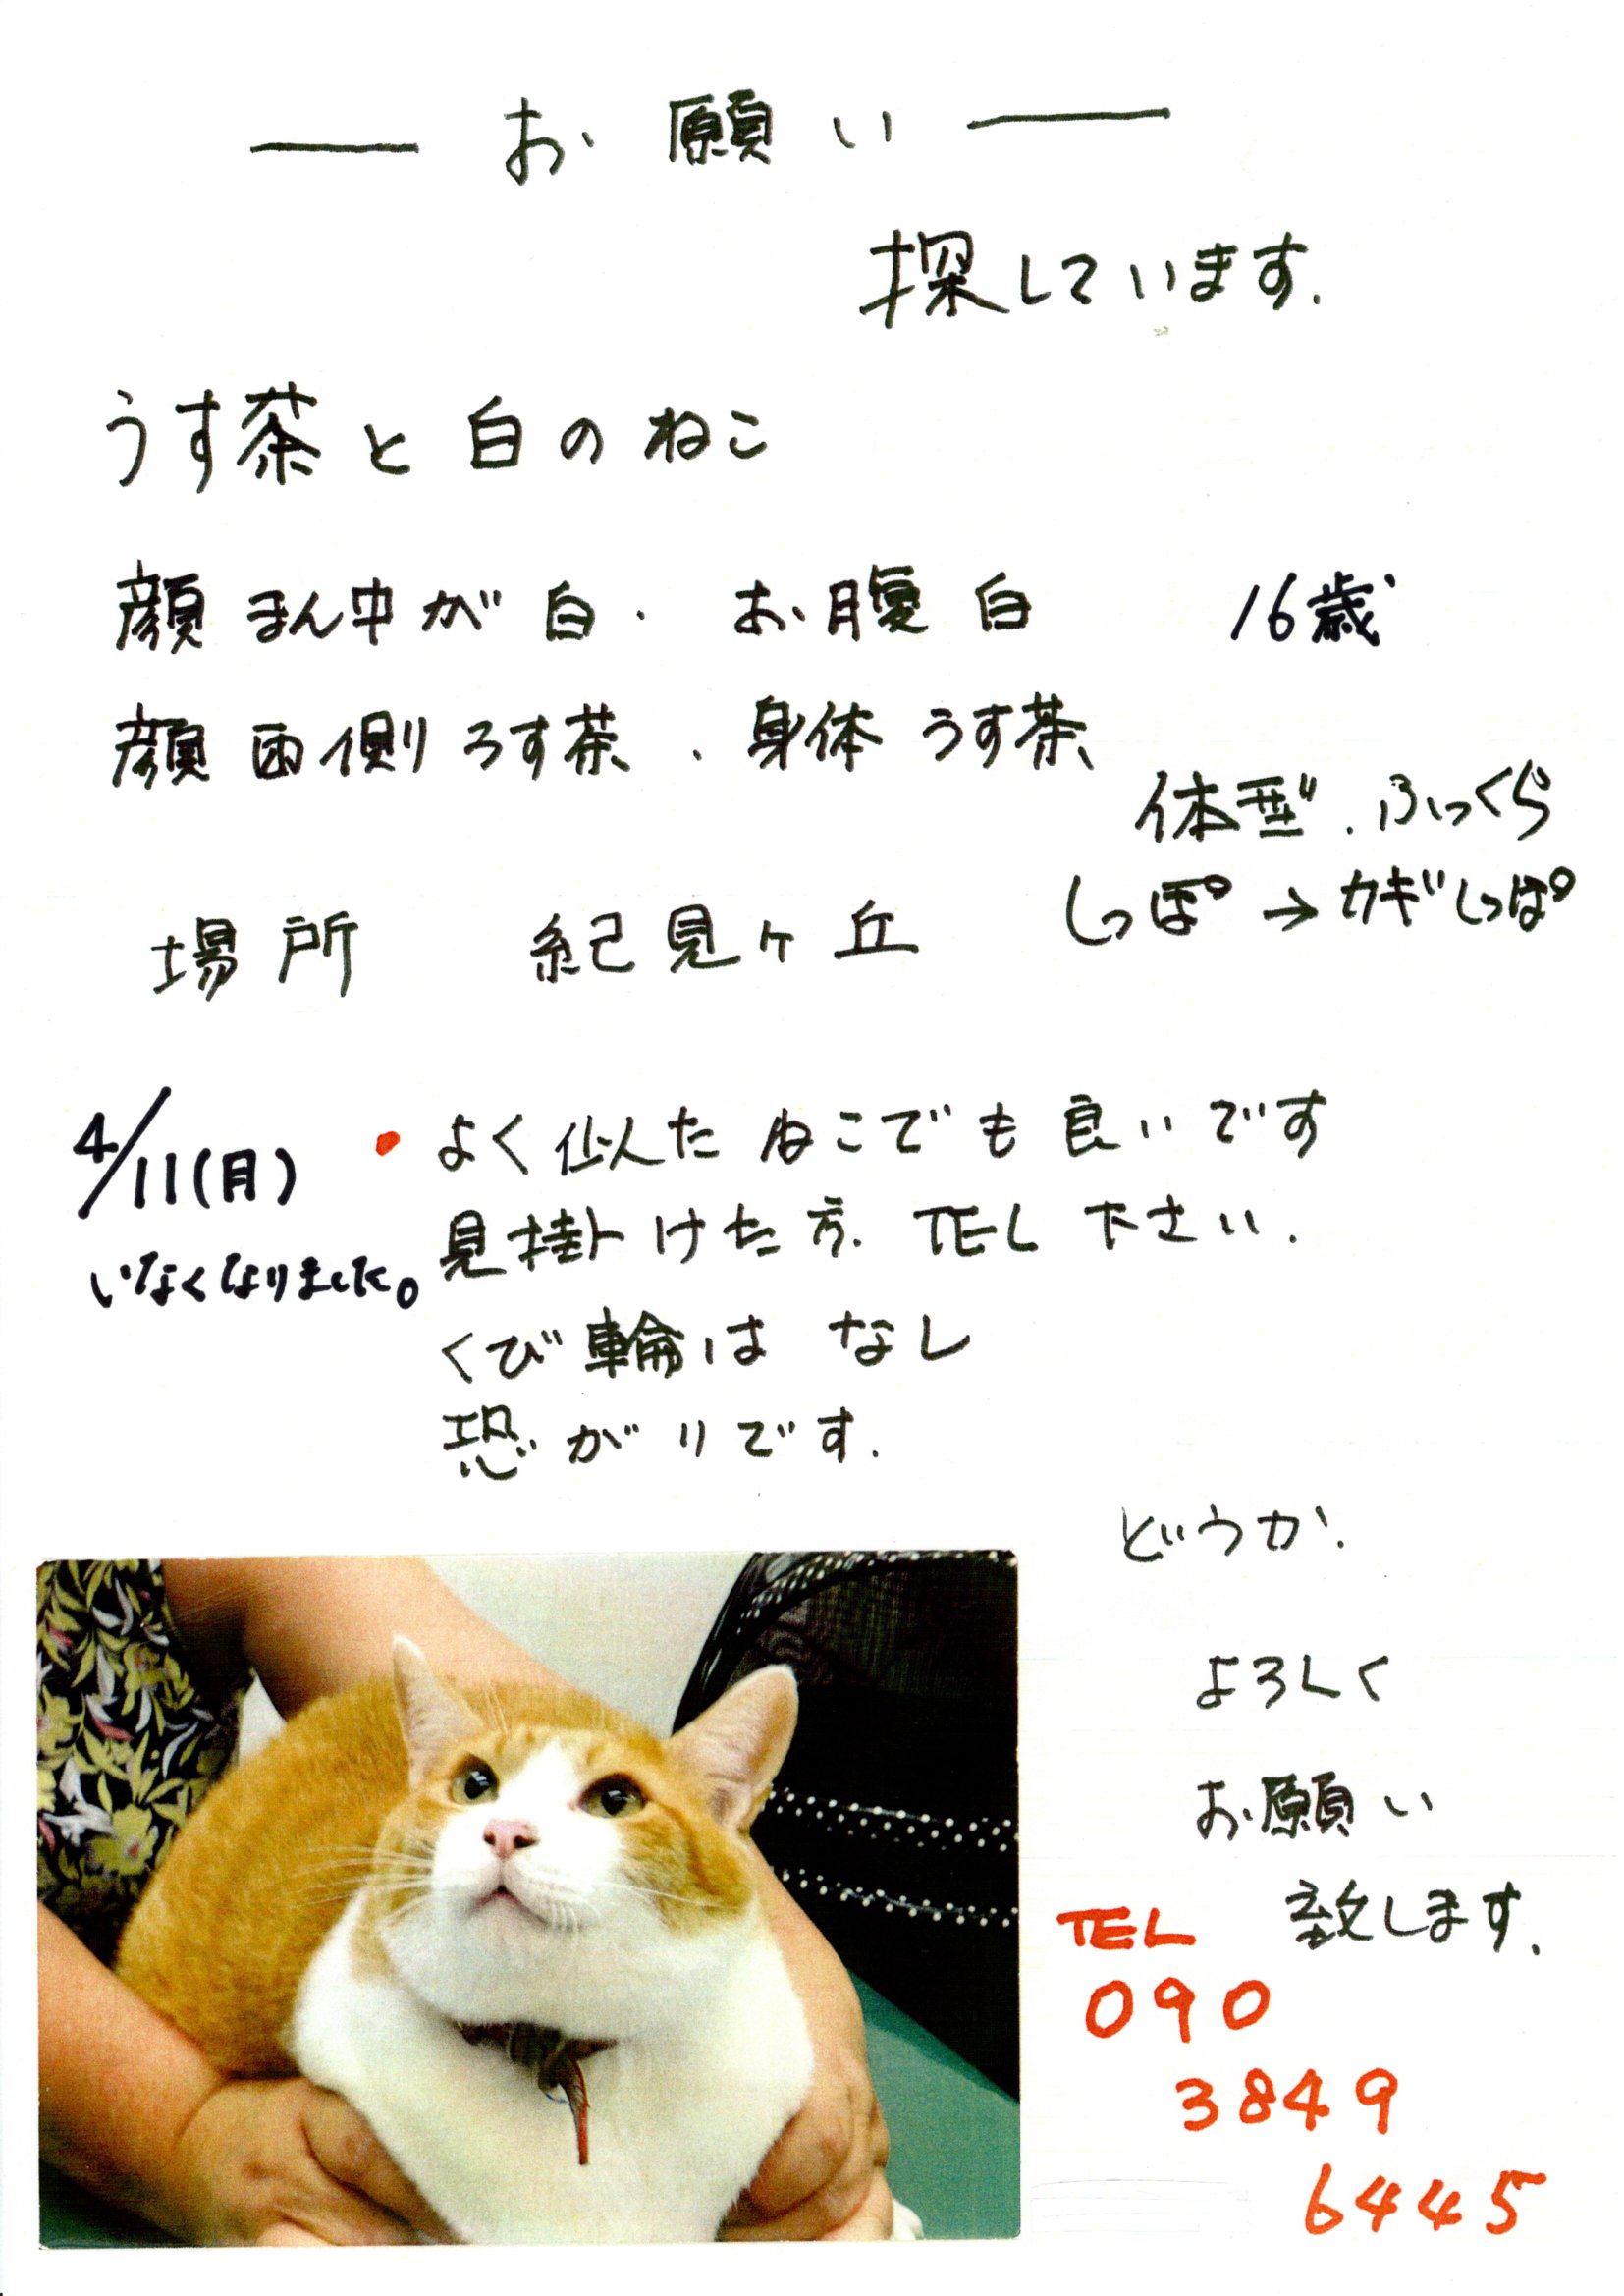 お願い
探しています.
うす茶と白のねこ
顔まん中が白. お腹白 16歳
顔両側うす茶. 身体うす茶
体型.ふっくら
しっぽ→カギしっぽ
場所 紀見ヶ丘
4/11(月)
いなくなりました。
・よく似たねこでも良いです
見掛けた方. TEL下さい.
くび輪はなし
恐がりです.
どうか.
よろしく
お願い
致します.
TEL
090
3849
6445